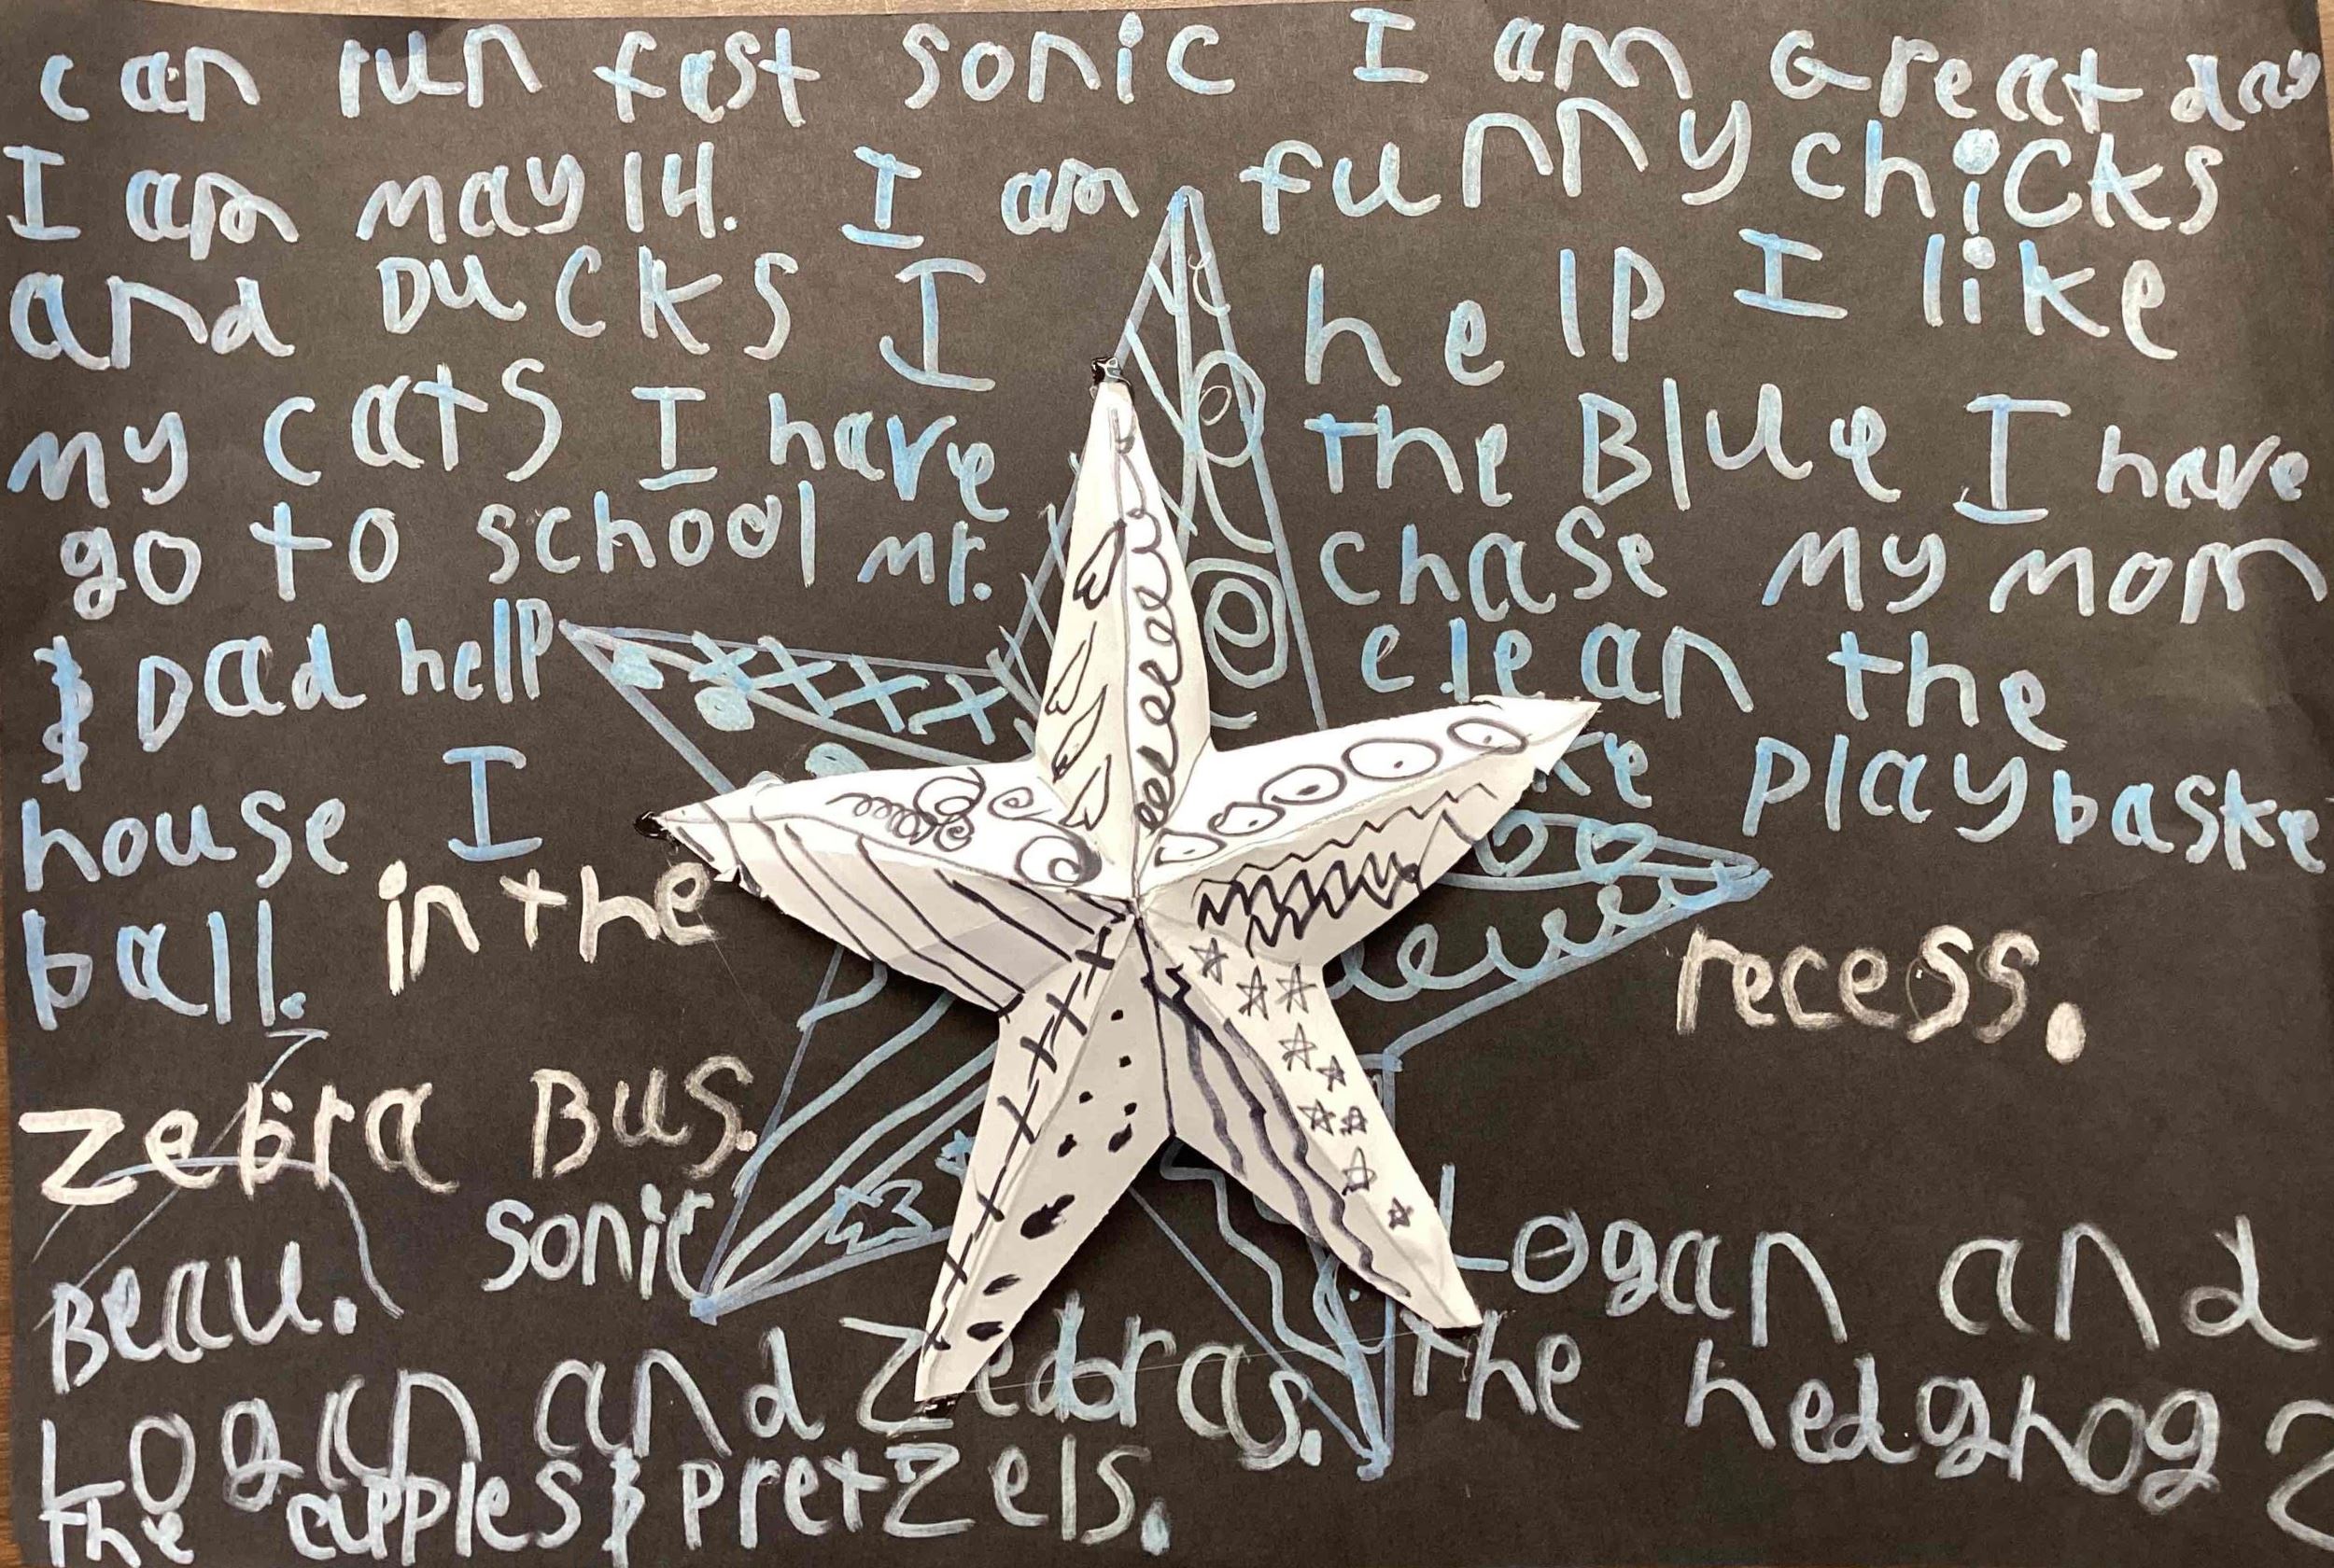 can run fast sonic I am Great day
I am may 14. I am funny chicks
and Ducks I help I like
my cats I have the Blue I have
go to school mr. chase my mom
& Dad help clean the
house I ke play baske
ball. in the recess.
zebra Bus.
Beau. sonic Logan and
Logan and Zebras. the hedghog 2
the apples & pretzels.